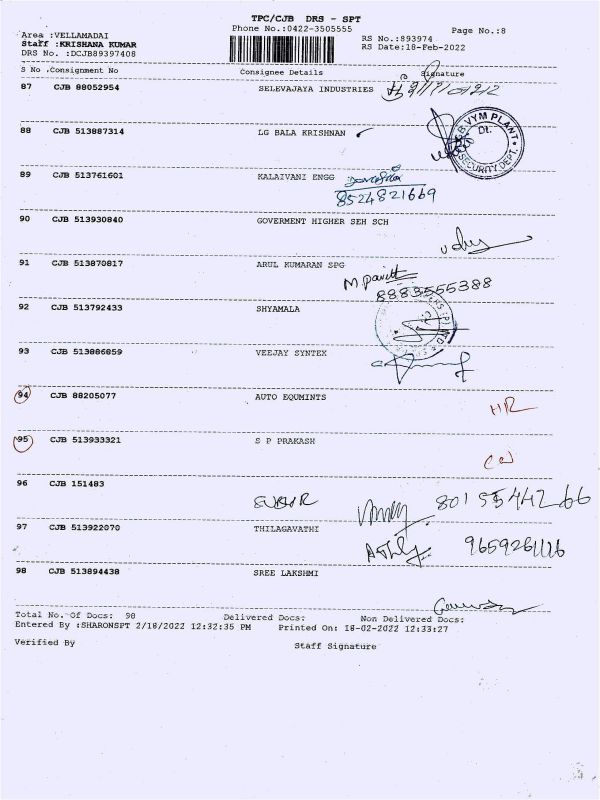 TPC/CJB DRS - SPT
Phone No.:0422-3505555
Page No.:8
Area :VELLAMADAI
Staff :KRISHANA KUMAR
DRS No. :DCJB89397408
RS No.:893974
RS Date:18-Feb-2022
S No .Consignment No Consignee Details Signature
87 CJB 88052954 SELEVAJAYA INDUSTRIES
88 CJB 513887314 LG BALA KRISHNAN
VYM PLANT
Dt.
SECURITY DEPT.
89 CJB 513761601 KALAIVANI ENGG
8524821669
90 CJB 513930840 GOVERMENT HIGHER SEH SCH
91 CJB 513870817 ARUL KUMARAN SPG
8883555388
92 CJB 513792433 SHYAMALA
93 CJB 513886859 VEEJAY SYNTEX
94 CJB 88205077 AUTO EQUMINTS
HR
95 CJB 513933321 S P PRAKASH
96 CJB 151483
97 CJB 513922070 THILAGAVATHI
98 CJB 513894438 SREE LAKSHMI
Total No. Of Docs: 98 Delivered Docs: Non Delivered Docs:
Entered By :SHARONSPT 2/18/2022 12:32:35 PM Printed On: 18-02-2022 12:33:27
Verified By Staff Signature